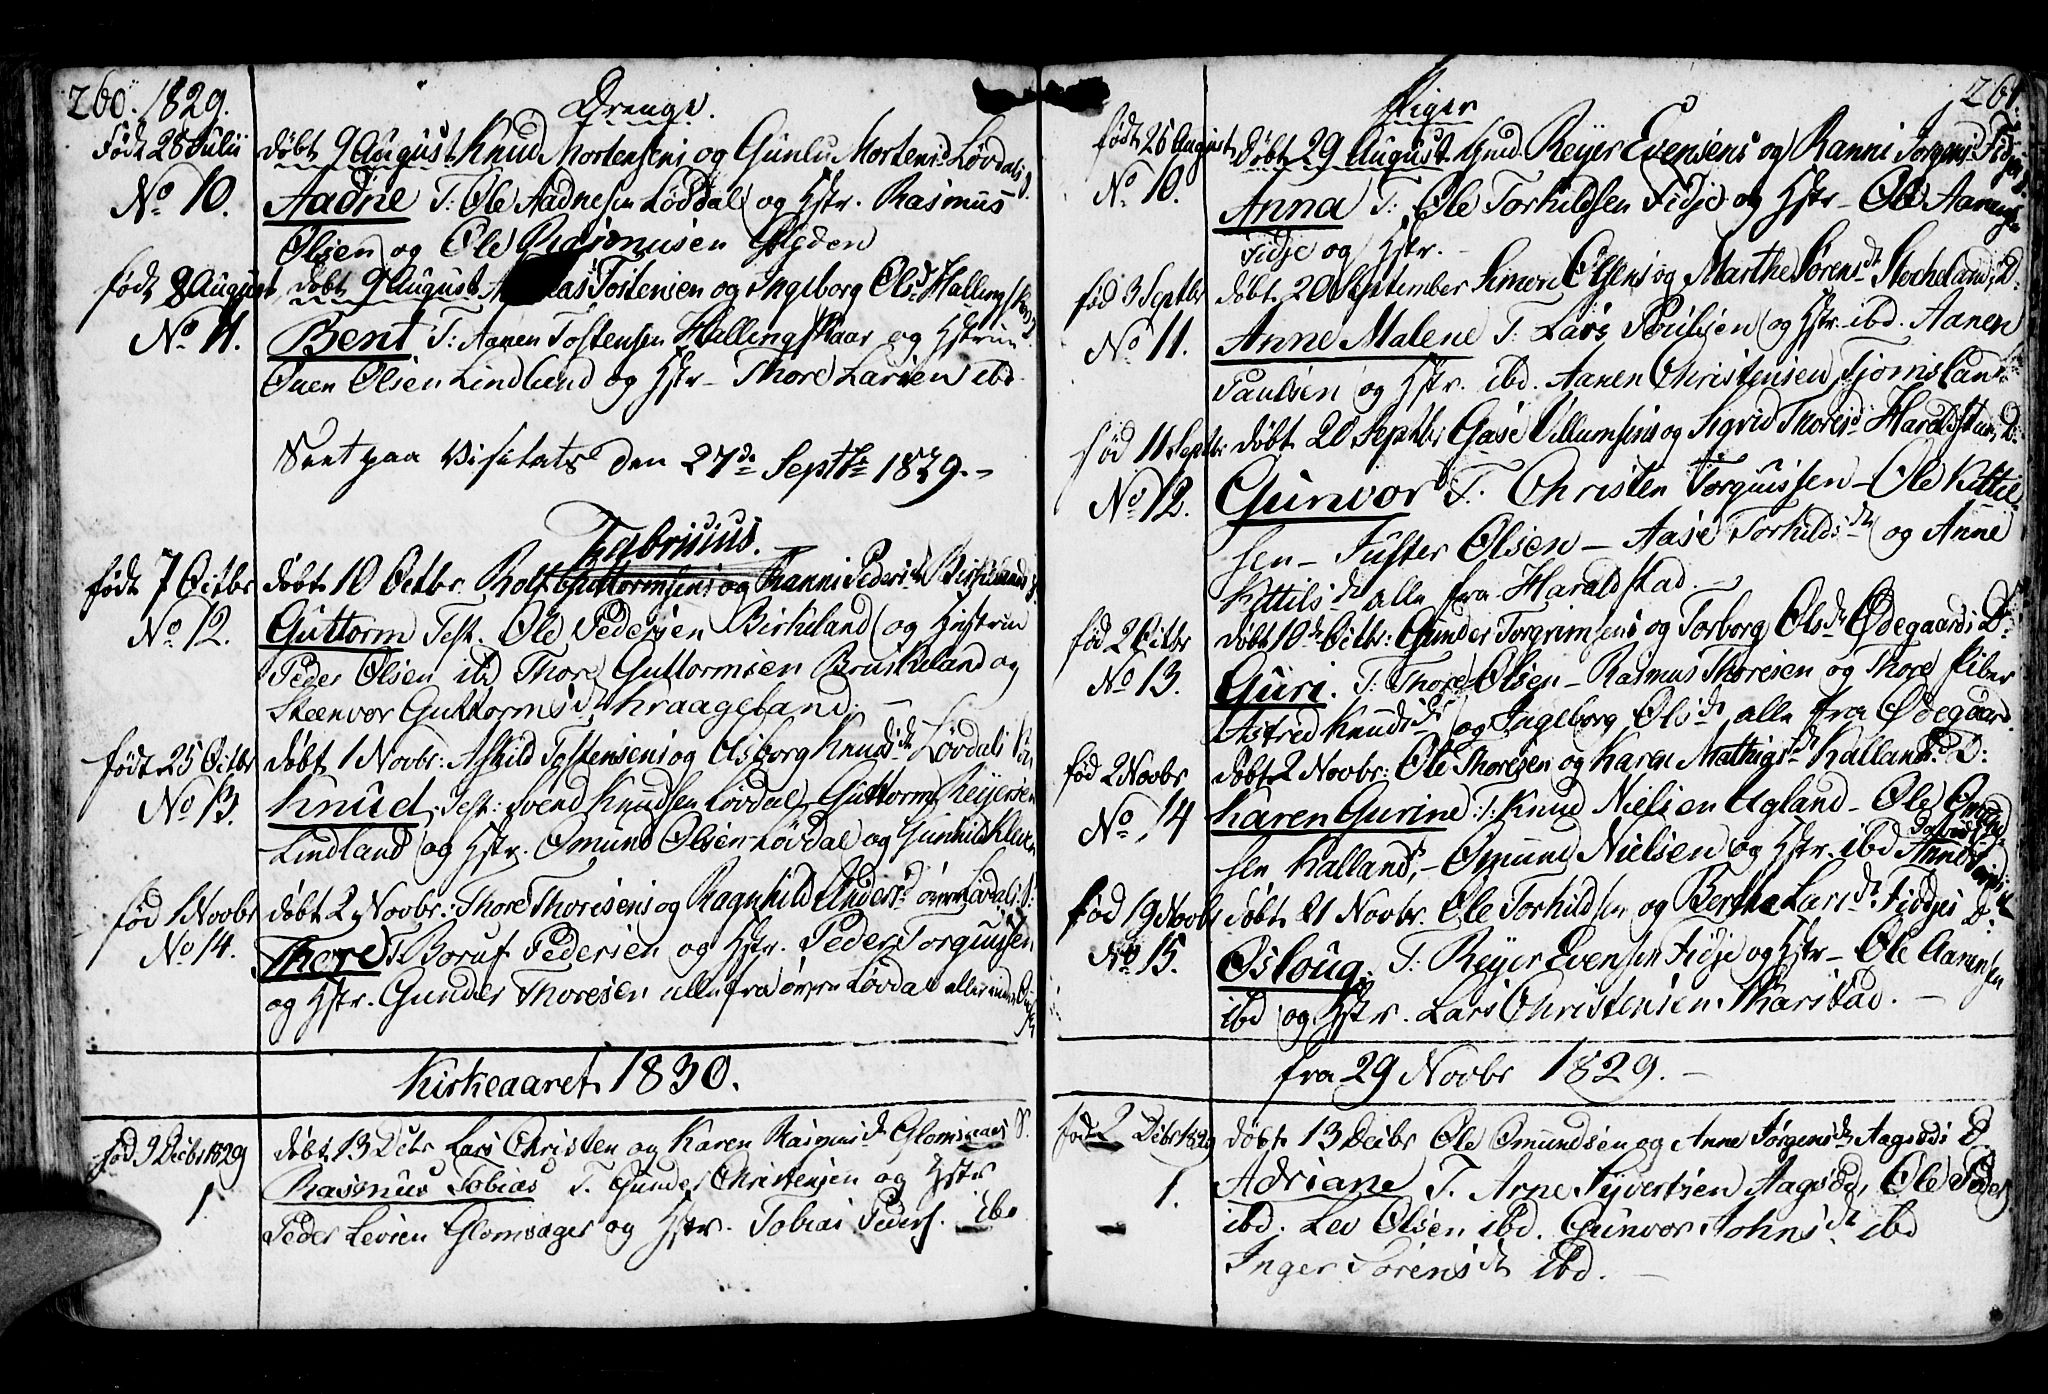 260. 1829. Drenge.
Født 28 Julii døbt 9 August Knud Mortensens og Gunlu Mortens: Løvdals S.
No 10. Aadne T: Ole Aadnesen Løvdal og Hstr. Rasmus
Olsen og Ole Rasmusen
født 8 August døbt 9 August Tostensen og Ingeborg Olsd. Hallingskaar
No 11. Bent T: Aanen Tostensen Hallingskaar og Hstruu
Ouen Olsen Lindlund og Hstr - Thore Larsen ibd.
Seet paa Visitats den 27de Septbr 1829. -
Fabricius.
født 7 Octbr døbt 10 Octbr. Rolf Guttormsens og Ranni Pedersd. Birkelands S.
No 12. Guttorm Test. Ole Pedersen Birkeland og Hustru
Peder Olsen ibd Thore Guttormsen Bruskeland og
Steenvor Guttormsd. Kraageland. -
født 25 Octbr døbt 1 Novbr: Askild Tostensens og Olsborg Knudsd. Løvdals
No 13. Knud. Test: Svend Knudsen Løvdal, Guttorm Reyersen
Lindland og Hstr. Omund Olsen Løvdal og Gunhild
fød 1 Novbr døbt 2 Novbr: Thore Thoresens og Ragnhild Andersd. øvre Løvdals S:
No 14. Thore T: Boruf Pedersen og Hstr. Peder Torguussen
og Hstr. Gunder Thoresen alle fra øvre Løvdal
Kirkeaaret 1830.
fød 9 Decbr 1829 døbt 13 Decbr Lars Christen og Karen Rasmusd. Glomsager S.
1. Rasmus Tobias T. Gunder Christensen og Hstr
Peder Levsen Glomsager og Hstr. Tobias Peders. ibd
261. Piger
født 25 August døbt 29 August Reyer Evensens og Ranni Jørgensd. Fidjes
No 10. Anna T: Ole Torkildsen Fidje og Hstr - Ole Aanensen
Fidje og Hstr. -
fød 3 Septbr døbt 20 September Simon Olsens og Marthe Sørensd. Stockelands D.
No 11. Anne Malene T: Lars Poulsen og Hstr. ibd. Aanen
Paulsen og Hstr. ibd. Aanen Christensen Tjomsland
fød 11 Septbr døbt 20 Septbr Gase Villumsens og Sigrid Thoresd. Haraldstads D:
No 12. Gunvor T. Christen Torguissen - Ole Kittel
sen - Juster Olsen - Aase Torkildsd. og Anne
Kittilsd. alle fra Haraldstad. -
fød 2 Octbr døbt 10de Octbr: Gunder Torgrimsens og Torborg Olsd. Ødegaards D:
No 13. Guri. T: Thore Olsen - Rasmus Thoresen og Thore
Astred Knudsd. og Ingeborg Olsd. alle fra Ødegaard.
fød 2 Novbr døbt 2 Novbr: Ole Thoresen og Karen Mathigsd. Kallands D:
No 14 Karen Gurine T: Knud Nielsen Ugland - Ole Omund
sen Kalland, - Omund Nielsen og Hstr. ibd
fød 19 Novbr døbt 21 Novbr. Ole Torkildsen og Berthe Larsd. Fidjes D:
No 15. Osloug. T: Reyer Evensen Fidje og Hstr - Ole Aanensen
ibd og Hstr. Lars Christensen Karstad. -
fra 29 Novbr 1829. -
fød 2 Decbr 1829 døbt 13 Decbr Ole Omundsen og Anne Jørgensd. Aagsøds D.
1. Adriane T. Arne Syvertsen Aagsød, Ole Peder
ibd. Lev Olsen ibd. Gunvor Johnsd. ibd
Inger Sørensd. ibd. -